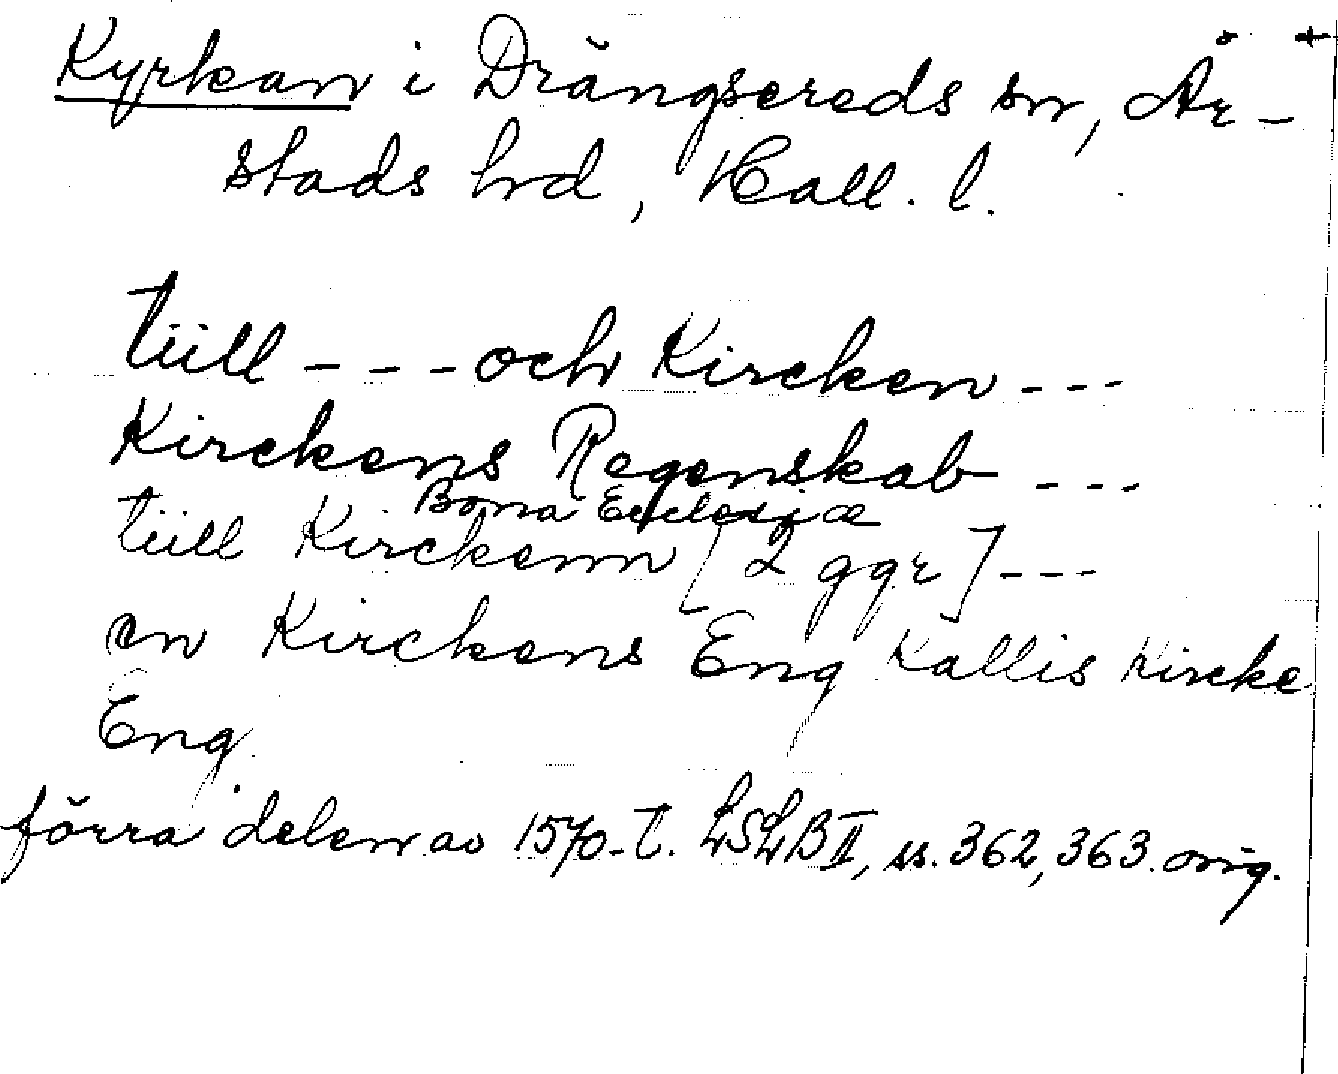 Kyrkan i Drängsereds sn, År- +
stads hrd, Hall. l.
tiill - - - och Kircken - - -
Kirckens Regenskab - - -
Bona Ecclesiæ
tiill Kirckenn [2 ggr] - - -
en Kirckens Eng Kallis Kircke
Eng.
förra delen av 1570-t. LSLB II, ss. 362, 363. orig.